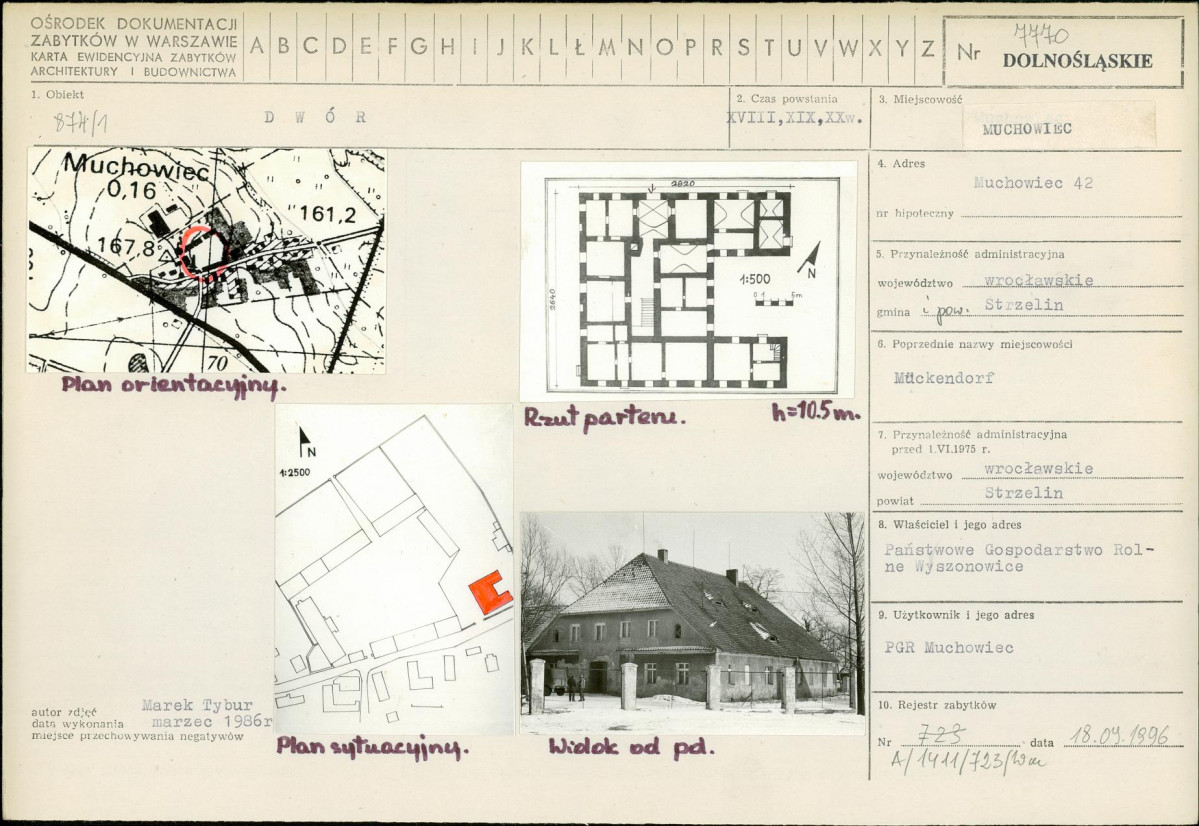 OŚRODEK DOKUMENTACJI
ZABYTKÓW W WARSZAWIE
KARTA EWIDENCYJNA ZABYTKÓW
ARCHITEKTURY I BUDOWNICTWA
A B C D E F G H I J K L Ł M N O P R S T U V W X Y Z
Nr 7770
DOLNOŚLĄSKIE
1. Obiekt
874/1
D W Ó R
2. Czas powstania
XVIII,XIX,XXw.
3. Miejscowość
MUCHOWIEC
4. Adres
Muchowiec 42
nr hipoteczny
5. Przynależność administracyjna
województwo wrocławskie
gmina i pow. Strzelin
6. Poprzednie nazwy miejscowości
Mückendorf
7. Przynależność administracyjna
przed 1.VI.1975 r.
województwo wrocławskie
powiat Strzelin
8. Właściciel i jego adres
Państwowe Gospodarstwo Rol-
ne Wyszonowice
9. Użytkownik i jego adres
PGR Muchowiec
10. Rejestr zabytków
Nr 723 data 18.09.1996
A/1411/723/Wm
Muchowiec
0,16
161,2
167,8
70
Plan orientacyjny.
2820
2640
1:500
0 1 5m
N
Rzut parteru. h=10.5m.
N
1:2500
Plan sytuacyjny.
Widok od pd.
autor zdjęć Marek Tybur
data wykonania marzec 1986r
miejsce przechowywania negatywów